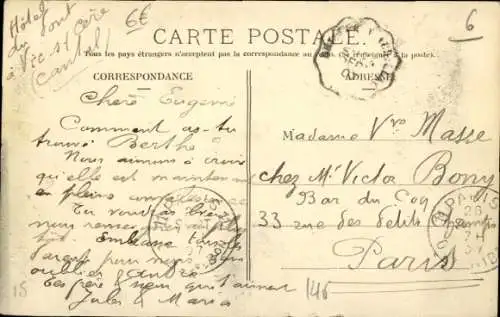 Hôtel
du Pont
à Vic s/ Cère
(Cantal)
6€
6
CARTE POSTALE
Tous les pays étrangers n'acceptent pas la correspondance au
CORRESPONDANCE
ADRESSE
Chère Eugénie
Comment as-tu
trouvé Berthe
Nous aimons à croire
qu'elle est maintenant
en pleine
Tu voudras bien
nous
Embrasse tous les
parents pour nous
oublier André
Tes frère & sœur qui t'aiment
Jules & Maria
Madame Vve Masse
chez Mr Victor Bony
Bar du Coq
33 rue des Petits Champs
Paris
PARIS
15
146